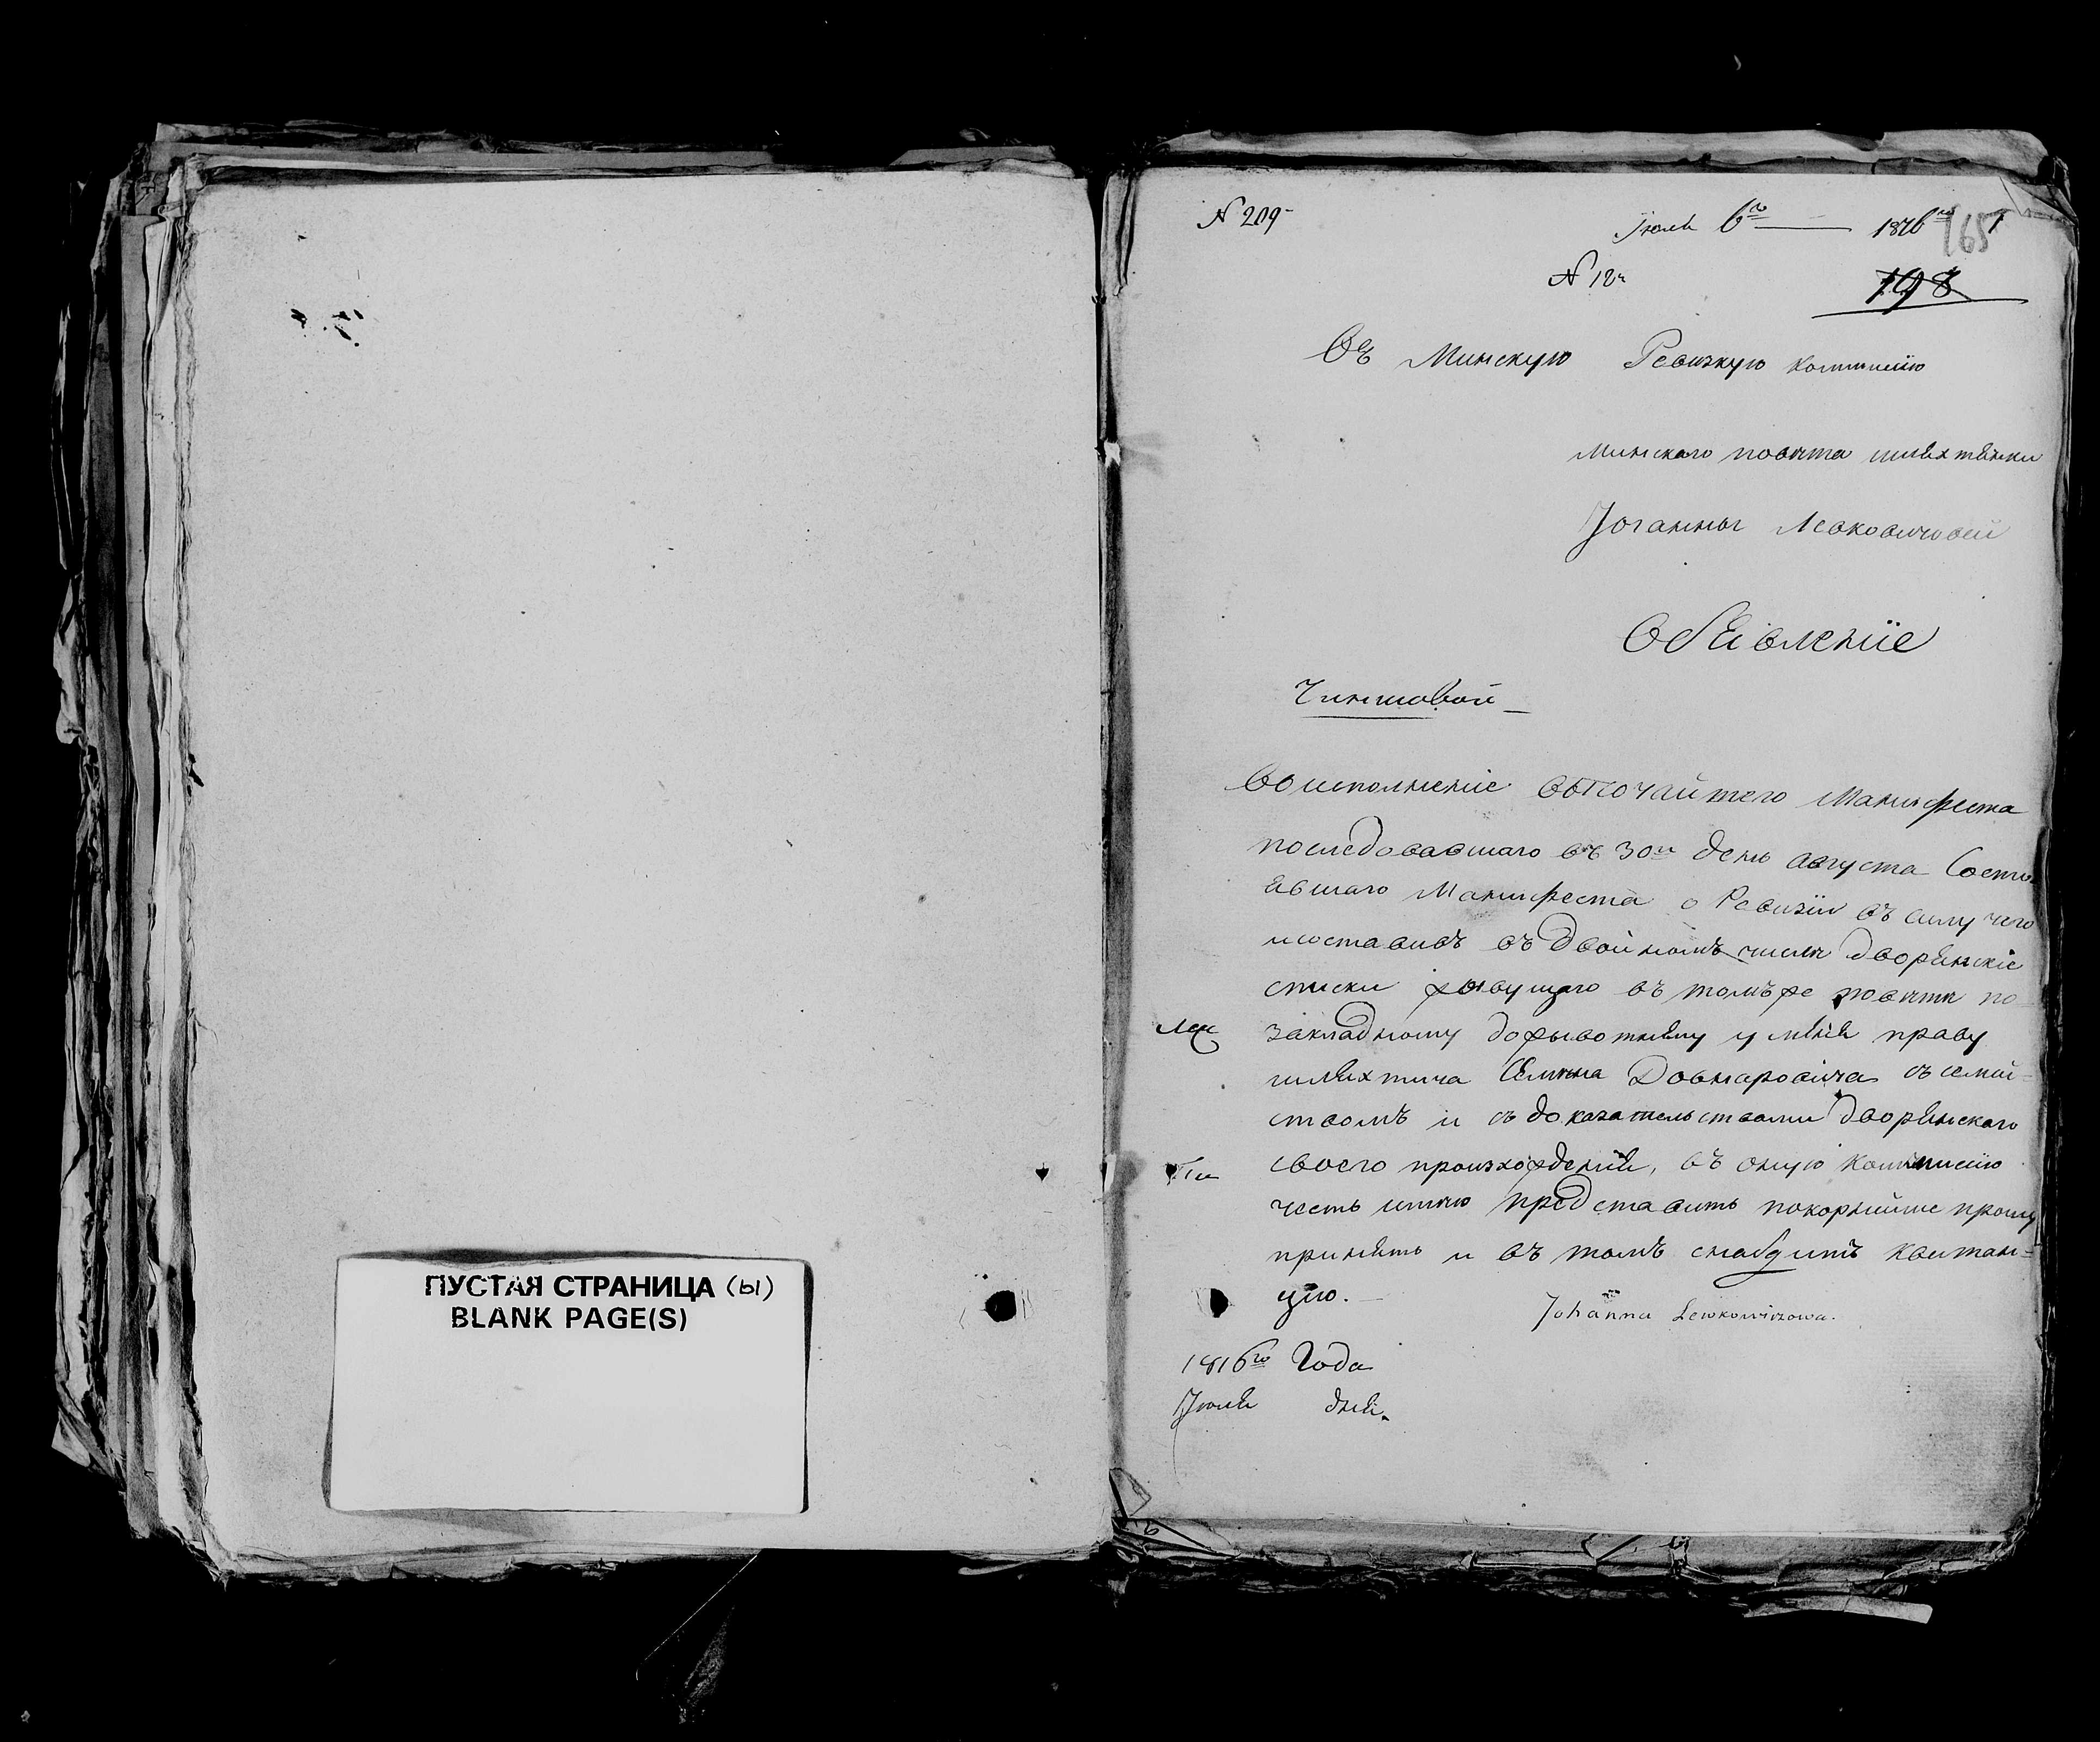 ПУСТАЯ СТРАНИЦА (ы)
BLANK PAGE(S)
N 209
Июля 6го 1816го
165
N 12
198
Въ Минскую Ревизкую Коммисию
Минскаго повѣта шляхтянки
Иоганны Левковичовей
Объявленіе
Чиншовой
Во исполненіе высочайшего Манифеста
последовавшаго въ 30й день августа Состо
явшаго Манифеста о Ревизіи въ силу чего
и составивъ въ двойномъ числѣ дворянскіе
списки живущаго въ томъже повѣтѣ по
закладному доживотнему у мѣня праву
шляхтича Довнаровича съ семей=
ствомъ и съ доказательствами дворянскаго
своего произхожденія, въ оную Коммисию
честь имѣю представить покорнѣйше прошу
принять и въ томъ снабдить квитан=
цію.
Johanna Lewkowiczowa.
1816го Года
Июля дня.